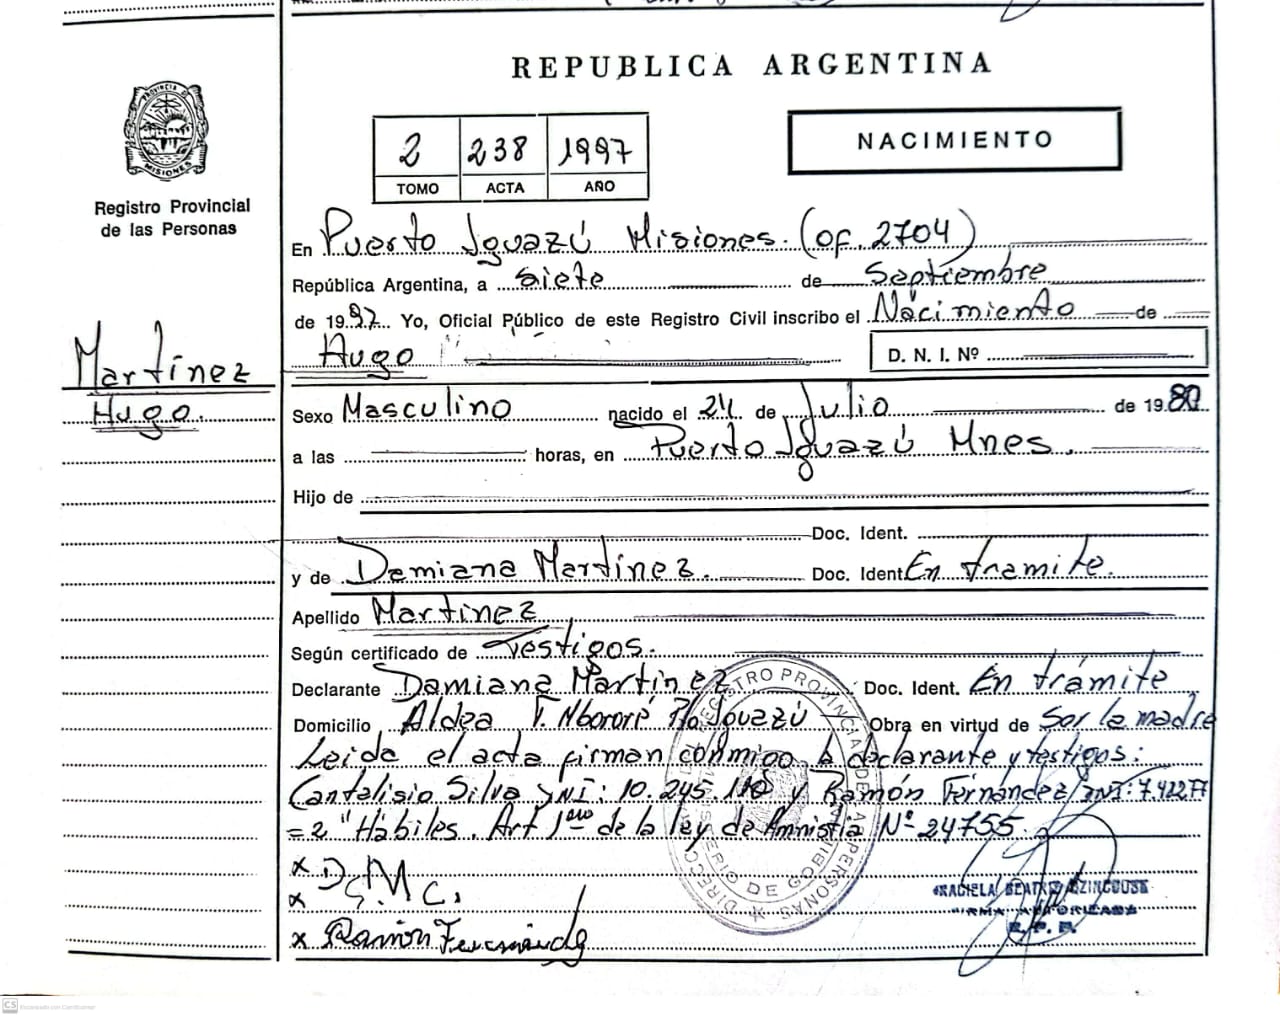 REPUBLICA ARGENTINA
PROVINCIA DE MISIONES
2 238 1997
TOMO ACTA AÑO
NACIMIENTO
Registro Provincial
de las Personas
En Puerto Iguazú Misiones. (of. 2704)
República Argentina, a siete de Septiembre
de 1997. Yo, Oficial Público de este Registro Civil inscribo el Nacimiento de
Hugo
D. N. I. Nº
Martínez
Hugo.
Sexo Masculino nacido el 24 de Julio de 1980
a las horas, en Puerto Iguazú Mnes.
Hijo de
Doc. Ident.
y de Damiana Martínez. Doc. Ident. En tramite.
Apellido Martínez
Según certificado de Testigos.
Declarante Damiana Martínez Doc. Ident. En trámite
Domicilio Aldea F. Mbororé Pto Iguazú Obra en virtud de Ser la madre
Leida el acta firman conmigo la declarante y testigos:
Cantalisio Silva DNI: 10.245.118 y Ramón Fernández DNI: 7.422.77
=2 "Hábiles. Art 1ero de la ley de Amnistía Nº 24755.
x D. M.
x
x Ramón Fernández
REGISTRO PROVINCIAL DE LAS PERSONAS
MINISTERIO DE GOBIERNO
GRACIELA BEATRIZ
FIRMA AUTORIZADA
R. P. P.
CS Escaneado con CamScanner